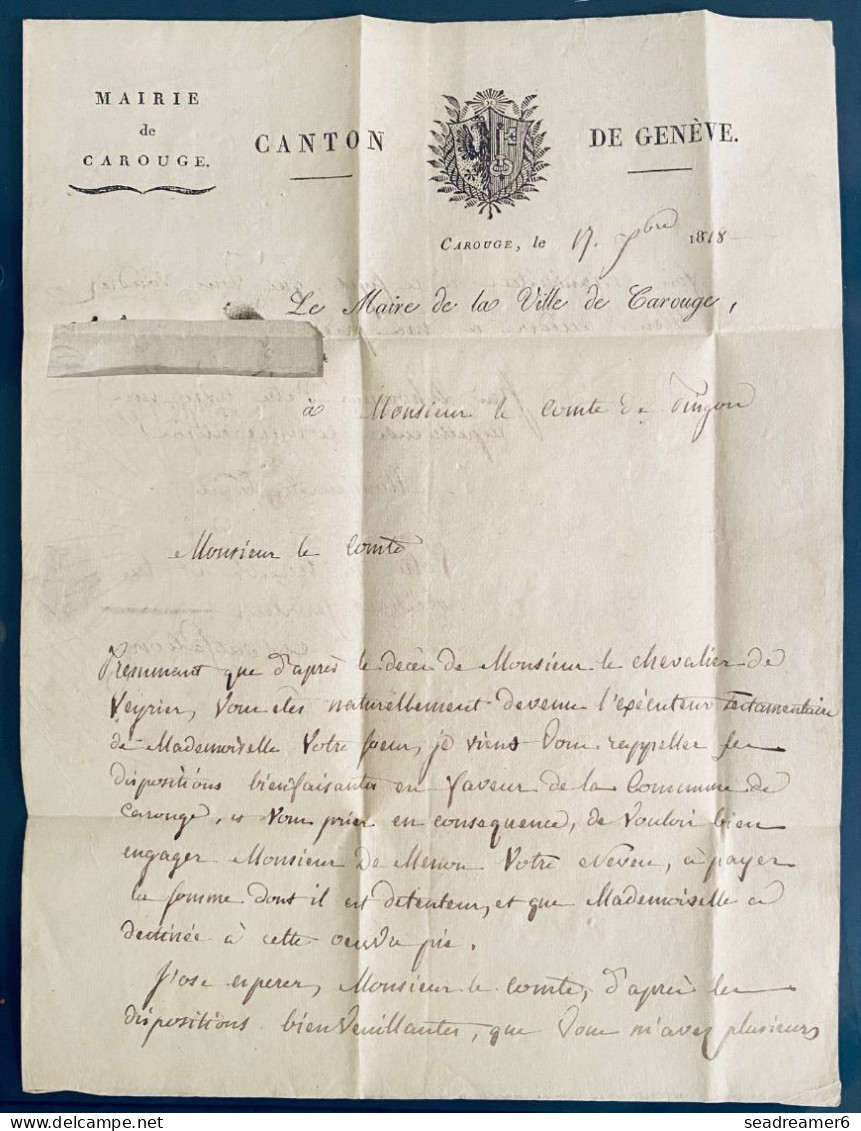 MAIRIE
de
CAROUGE.
CANTON DE GENÈVE.
CAROUGE, le 17. 9bre 1818
Le Maire de la Ville de Carouge,
à Monsieur le Comte de
Monsieur le Comte
Présumant que d'après le decès de Monsieur le chevalier de
Veyrier, Vous etes naturellement devenu l'exécuteur testamentaire
de Mademoiselle Votre soeur, je viens Vous rappeller ses
dispositions bienfaisantes en faveur de la Commune de
Carouge, et Vous prier en conséquence, de Vouloir bien
engager Monsieur De Menou Votre neveu, à payer
la somme dont il est detenteur, et que Mademoiselle a
destinée à cette oeuvre pie.
J'ose esperer, Monsieur le Comte, d'après les
dispositions bienveuillantes, que Vous m'avez plusieurs
seadreamer6